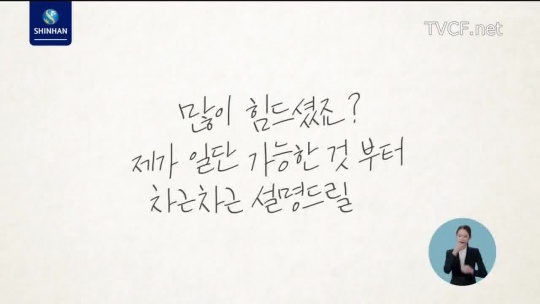 SHINHAN
TVCF.net
많이 힘드셨죠?
제가 일단 가능한 것 부터
차근차근 설명드릴